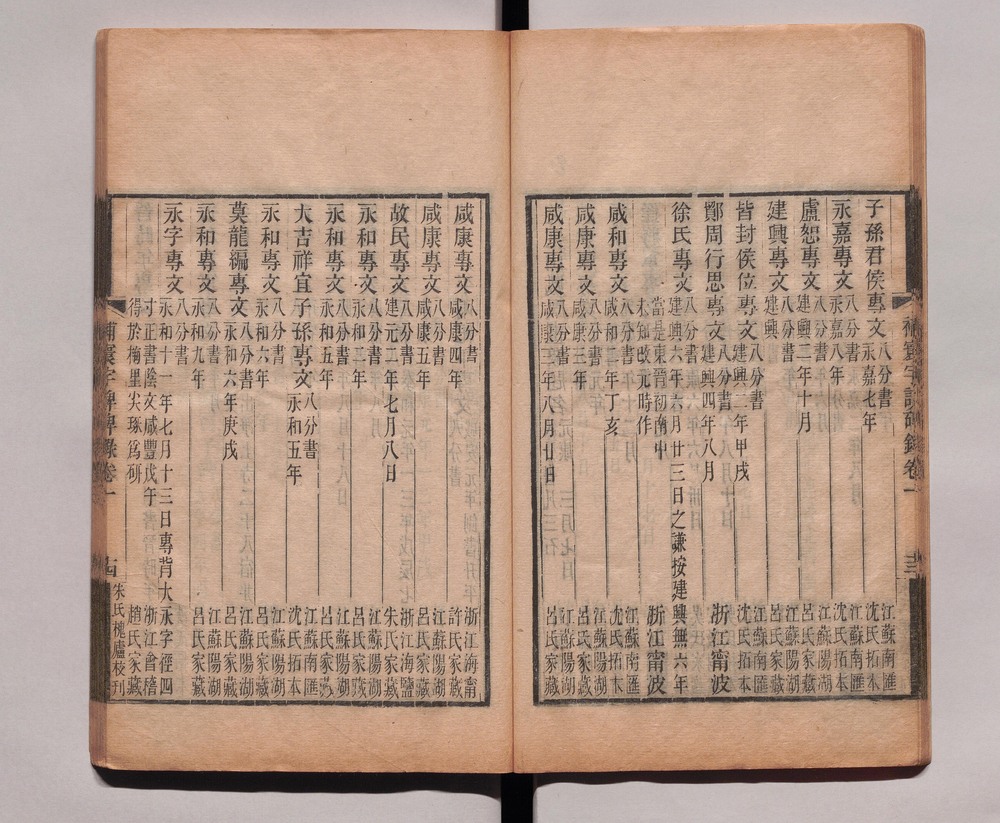 子孫君侯專文
八分書
永嘉七年
江蘇南匯
沈氏拓本
永嘉專文
八分書
永嘉八年
江蘇南匯
沈氏拓本
盧恕專文
八分書
建興二年十月
江蘇陽湖
呂氏家藏
建興專文
八分書
建興
江蘇陽湖
呂氏家藏
皆封侯位專文
八分書
建興二年甲戌
江蘇南匯
沈氏拓本
鄭周行思專文
八分書
建興四年八月
浙江甯波
徐氏專文
建興六年六月廿三日之謙按建興無六年
當是東晉初南中
未知改元時作
浙江甯波
咸和專文
八分書元年
咸和二年丁亥
江蘇南匯
沈氏拓本
咸康專文
八分書
咸康三年
江蘇陽湖
呂氏家藏
咸康專文
八分書
咸康三年八月廿日
江蘇陽湖
呂氏家藏
補寰宇訪碑錄卷一
十三
咸康專文
八分書
咸康四年
浙江海甯
許氏家藏
咸康專文
八分書
咸康五年
江蘇陽湖
呂氏家藏
故民專文
八分書
建元二年七月八日
浙江海鹽
朱氏家藏
永和專文
八分書
永和二年
江蘇陽湖
呂氏家藏
永和專文
八分書
永和五年
江蘇南匯
沈氏拓本
大吉祥宜子孫專文
八分書
永和五年
江蘇南匯
沈氏拓本
永和專文
八分書
永和六年
江蘇陽湖
呂氏家藏
莫龍編專文
八分書
永和六年庚戌
江蘇陽湖
呂氏家藏
永和專文
八分書
永和九年
江蘇陽湖
呂氏家藏
永字專文
永和十一年七月十三日專背大永字徑四
寸正書陰文咸豐戊午
得於梅里尖琢為硯
浙江會稽
趙氏家藏
補寰宇訪碑錄卷一
十四
朱氏槐廬校刊